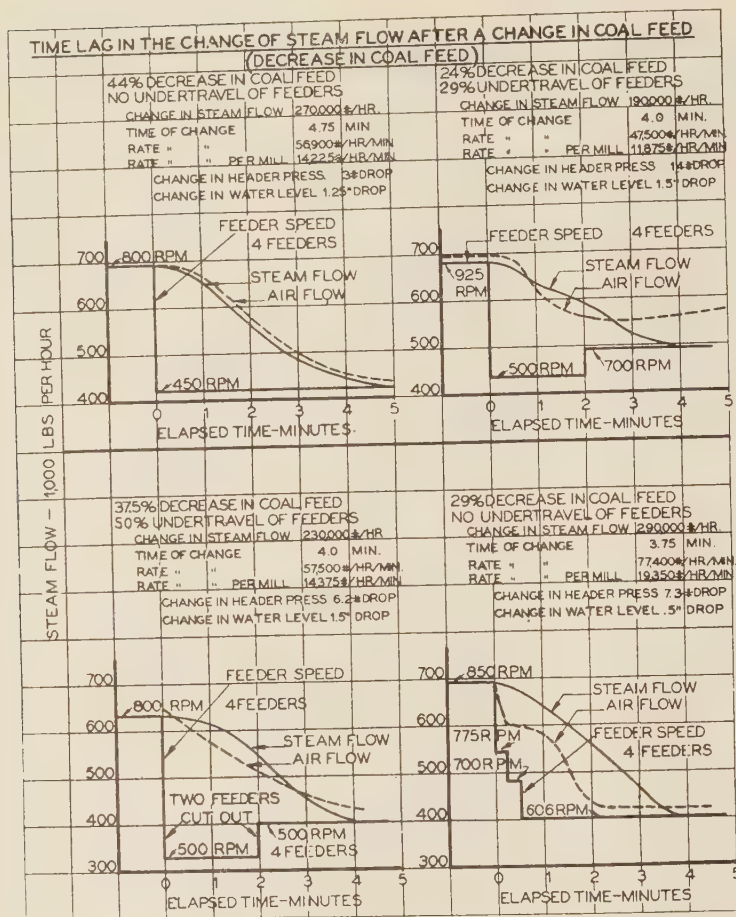 TIME LAG IN THE CHANGE OF STEAM FLOW AFTER A CHANGE IN COAL FEED
(DECREASE IN COAL FEED)
44% DECREASE IN COAL FEED
NO UNDERTRAVEL OF FEEDERS
CHANGE IN STEAM FLOW 270,000#/HR.
TIME OF CHANGE 4.75 MIN
RATE " " 56,900#/HR/MIN
RATE " " PER MILL 14,225#/HR/MIN
CHANGE IN HEADER PRESS. 3# DROP
CHANGE IN WATER LEVEL 1.25" DROP
FEEDER SPEED
4 FEEDERS
700
800 RPM
STEAM FLOW
AIR FLOW
600
500
450 RPM
400
0 1 2 3 4 5
ELAPSED TIME-MINUTES.
24% DECREASE IN COAL FEED
29% UNDERTRAVEL OF FEEDERS
CHANGE IN STEAM FLOW 190,000#/HR.
TIME OF CHANGE 4.0 MIN.
RATE " " 47,500#/HR/MIN
RATE " " PER MILL 11,875#/HR/MIN
CHANGE IN HEADER PRESS 14# DROP
CHANGE IN WATER LEVEL 1.5" DROP
FEEDER SPEED 4 FEEDERS
700
STEAM FLOW
AIR FLOW
925
RPM
600
500
500 RPM
700 RPM
400
0 1 2 3 4 5
ELAPSED TIME-MINUTES
STEAM FLOW - 1,000 LBS PER HOUR
37.5% DECREASE IN COAL FEED
50% UNDERTRAVEL OF FEEDERS
CHANGE IN STEAM FLOW 230,000#/HR
TIME OF CHANGE 4.0 MIN.
RATE " " 57,500#/HR/MIN
RATE " " PER MILL 14,375#/HR/MIN
CHANGE IN HEADER PRESS 6.2# DROP
CHANGE IN WATER LEVEL 1.5" DROP
700
FEEDER SPEED
800 RPM
4 FEEDERS
600
STEAM FLOW
AIR FLOW
500
TWO FEEDERS
CUT OUT
400
500 RPM
500 RPM
4 FEEDERS
300
0 1 2 3 4 5
ELAPSED TIME-MINUTES
29% DECREASE IN COAL FEED
NO UNDERTRAVEL OF FEEDERS
CHANGE IN STEAM FLOW 290,000#/HR.
TIME OF CHANGE 3.75 MIN.
RATE " " 77,400#/HR/MIN
RATE " " PER MILL 19,350#/HR/MIN
CHANGE IN HEADER PRESS 7.3# DROP
CHANGE IN WATER LEVEL .5" DROP
700
850 RPM
STEAM FLOW
AIR FLOW
600
775 RPM
FEEDER SPEED
4 FEEDERS
500
700 RPM
606 RPM
400
300
0 1 2 3 4 5
ELAPSED TIME-MINUTES